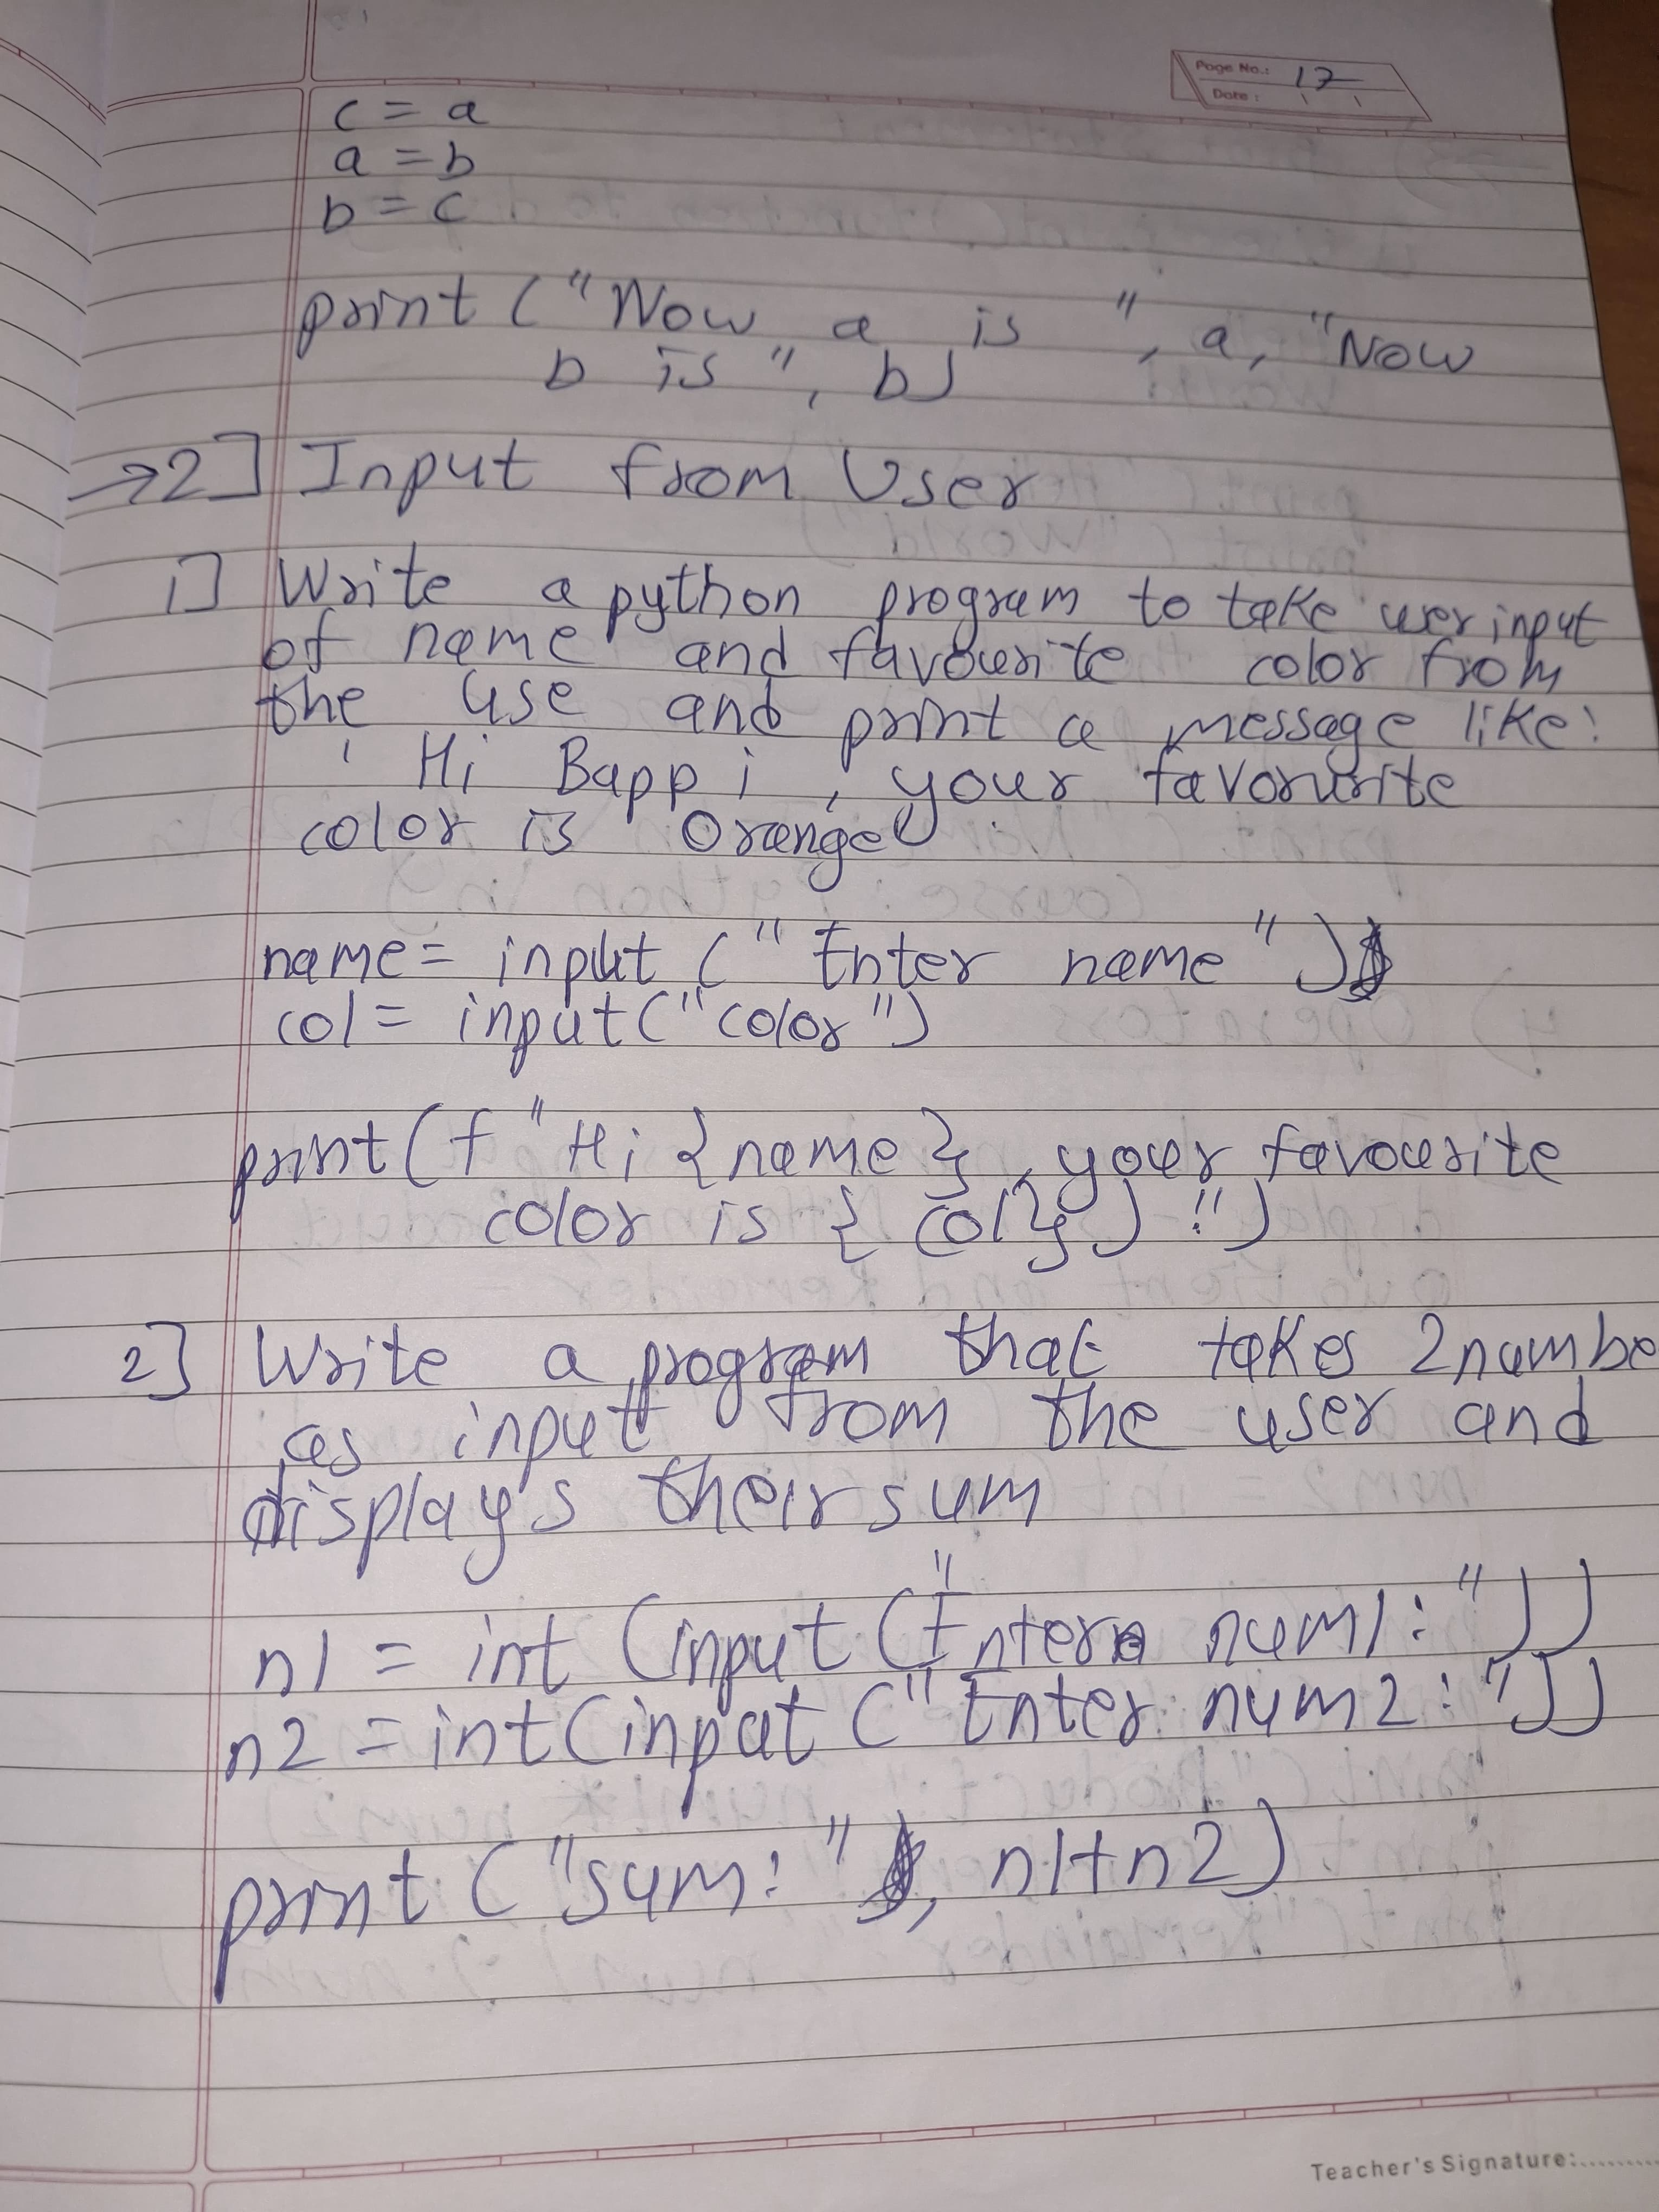 Page No.: 17
Date :
c = a
a = b
b = c
print ("Now a is ", a, "Now
b is ", b)
→2] Input from User
1] Write a python program to take user input
of name and favourite color from
the use and print a message like:
' Hi Bappi, your favorurite
color is Orange
name = input (" Enter name ")
col = input("color")
print(f "Hi {name}, your favourite
color is { col}) !")
2] Write a program that takes 2 numbe
as input from the user and
displays their sum
n1 = int (input ("Enter num1 : "))
n2 = int(input ("Enter num2 : "))
print ("sum: ", n1+n2)
Teacher's Signature:..........